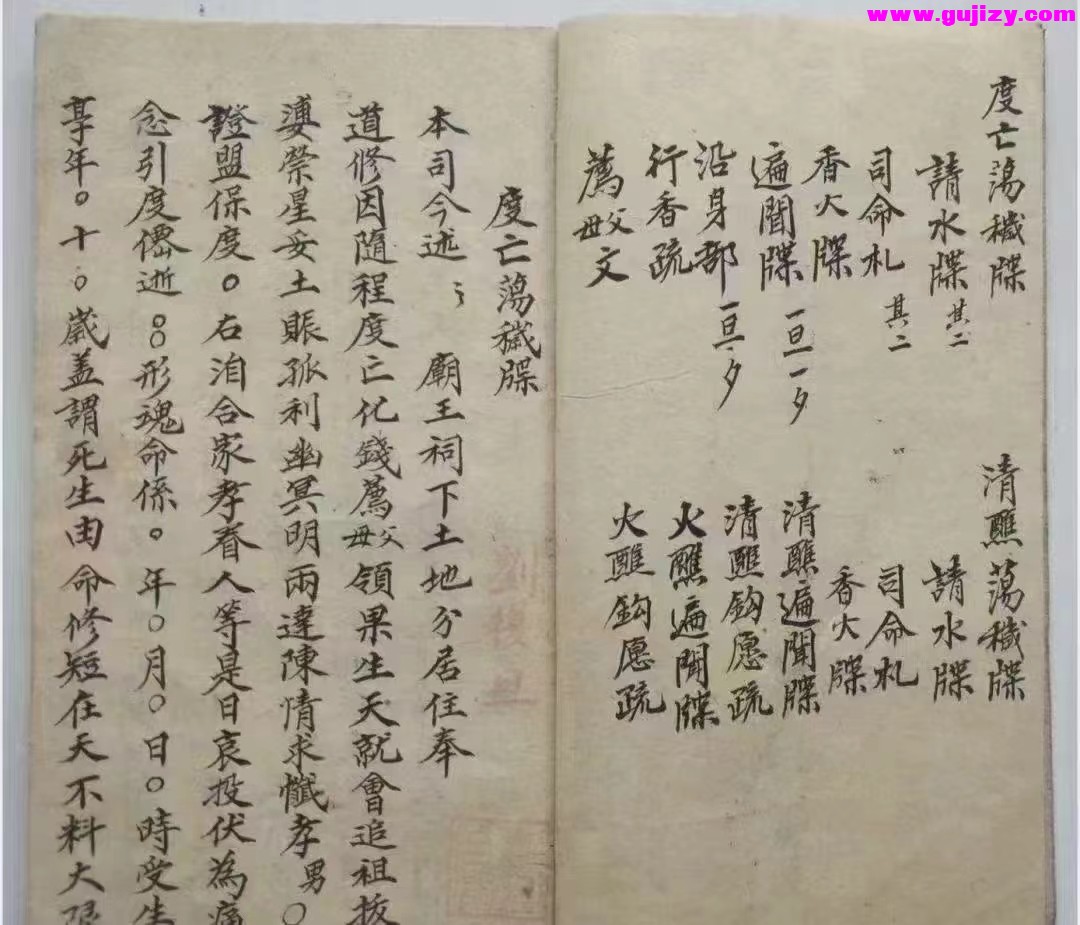 www.gujizy.com
度亡蕩穢牒
請水牒 其二
司命札 其二
香火牒
遍聞牒 一旦一夕
沿身部 一旦一夕
行香疏
薦父母文
清醮蕩穢牒
請水牒
司命札
香火牒
清醮遍聞牒
清醮鈎愿疏
火醮遍聞牒
火醮鈎愿疏
度亡蕩穢牒
本司今述〻 廟王祠下土地分居住奉
道修因隨程度亡化錢薦父母領果生天就會追祖拔
婆禜星妥土賬孤利幽冥明兩達陳情求懺孝男〇
證盟保度〇右洎合家孝眷人等是日哀投伏為痛
念引度僊逝〇〇形魂命係〇年〇月〇日〇時受生
享年〇十〇歲盖謂死生由命修短在天不料大限